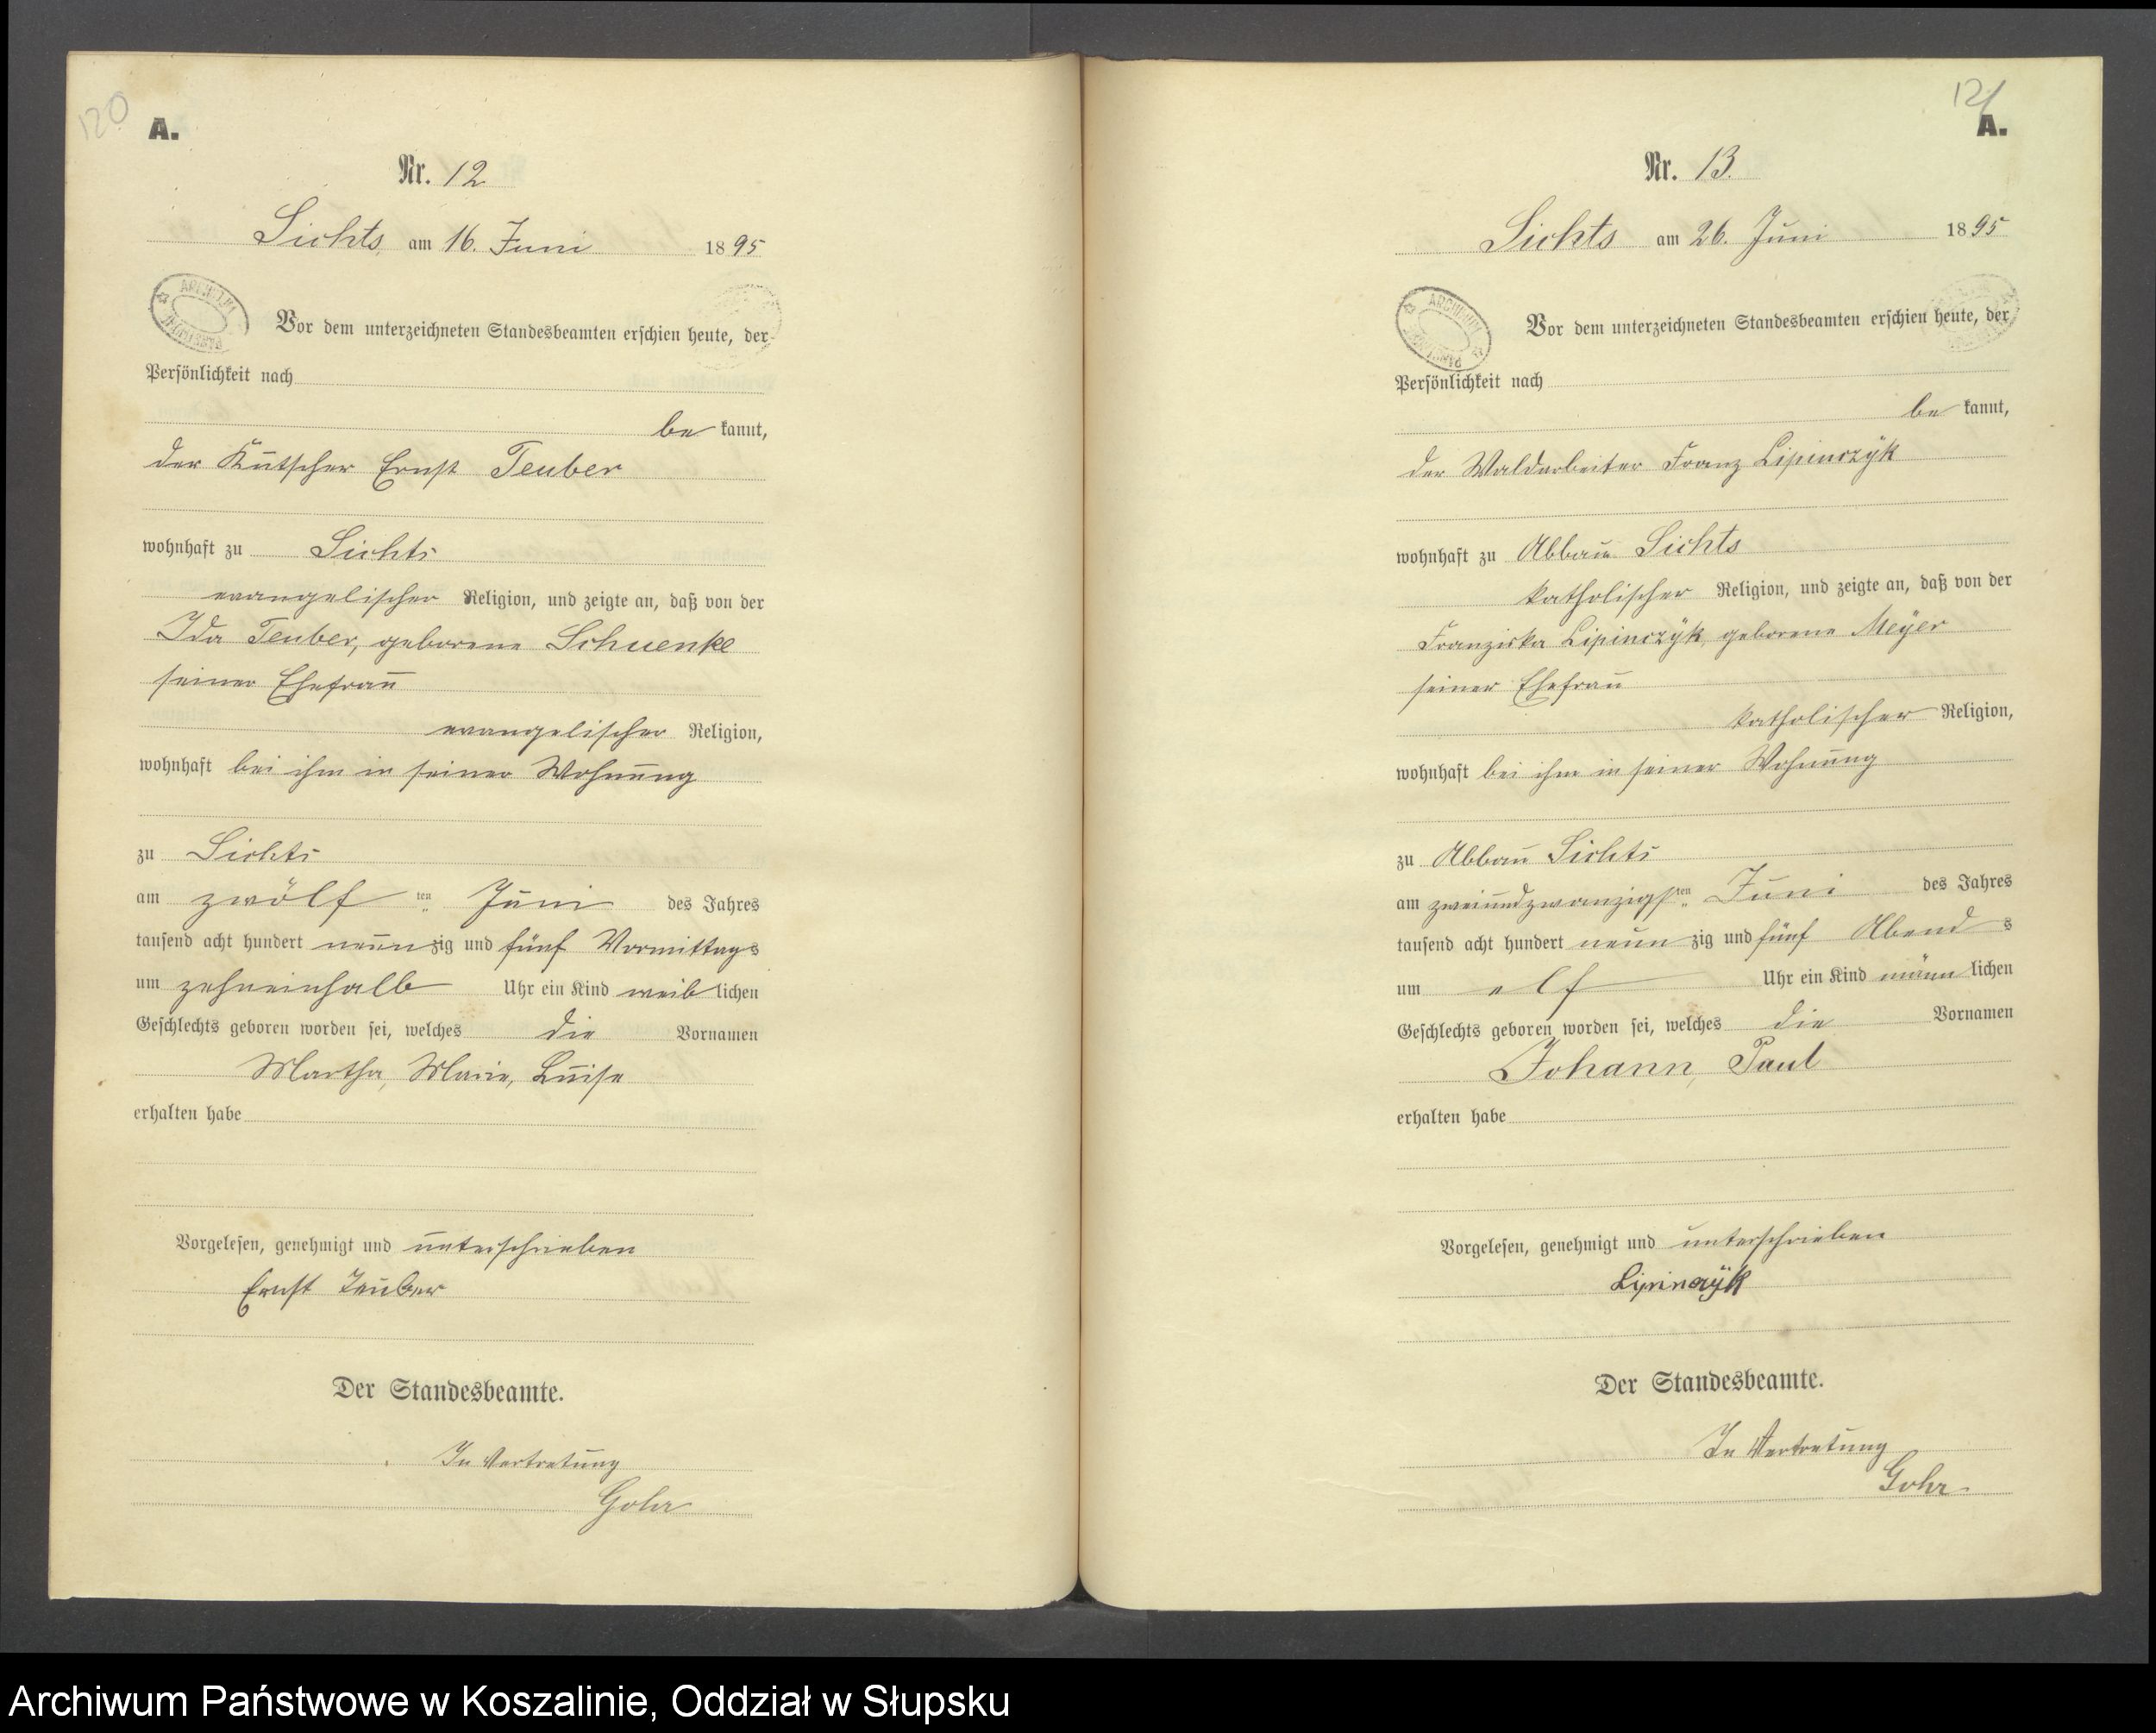 120
A.
Nr. 12
Sichts, am 16. Juni 1895
ARCHIWUM PAŃSTWOWE
Vor dem unterzeichneten Standesbeamten erschien heute, der
Persönlichkeit nach
bekannt,
der Kutscher Ernst Teuber
wohnhaft zu Sichts
evangelischer Religion, und zeigte an, daß von der
Ida Teuber, geborene Schuenke
seiner Ehefrau
evangelischer Religion,
wohnhaft bei ihm in seiner Wohnung
zu Sichts
am zwölf ten Juni des Jahres
tausend acht hundert neunzig und fünf Vormittags
um zehneinhalb Uhr ein Kind weiblichen
Geschlechts geboren worden sei, welches die Vornamen
Martha, Marie, Luise
erhalten habe
Vorgelesen, genehmigt und unterschrieben
Ernst Teuber
Der Standesbeamte.
In Vertretung
Gohr
121
A.
Nr. 13.
Sichts am 26. Juni 1895
ARCHIWUM PAŃSTWOWE
Vor dem unterzeichneten Standesbeamten erschien heute, der
Persönlichkeit nach
bekannt,
der Waldarbeiter Franz Lipinczÿk
wohnhaft zu Abbau Sichts
katholischer Religion, und zeigte an, daß von der
Franziska Lipinczÿk, geborene Meÿer
seiner Ehefrau
katholischer Religion,
wohnhaft bei ihm in seiner Wohnung
zu Abbau Sichts
am zweiundzwanzigsten Juni des Jahres
tausend acht hundert neunzig und fünf Abends
um elf Uhr ein Kind männlichen
Geschlechts geboren worden sei, welches die Vornamen
Johann, Paul
erhalten habe
Vorgelesen, genehmigt und unterschrieben
Lipinczÿk
Der Standesbeamte.
In Vertretung
Gohr
Archiwum Państwowe w Koszalinie, Oddział w Słupsku